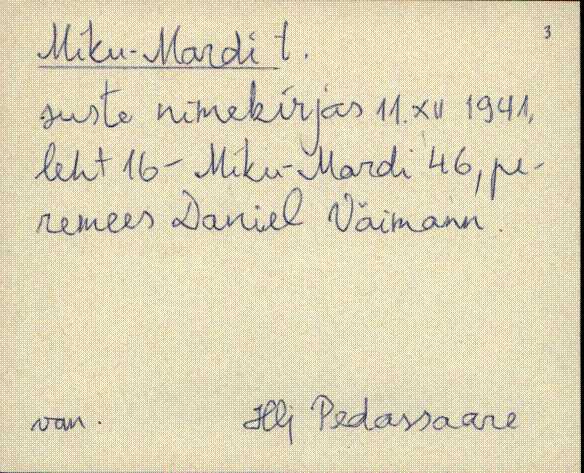 3
Miku-Mardi t.
suste nimekirjas 11. XII 1941,
leht 16 - Miku-Mardi 46, pe-
remees Daniel Väimann.
van. Hlj Pedassaare